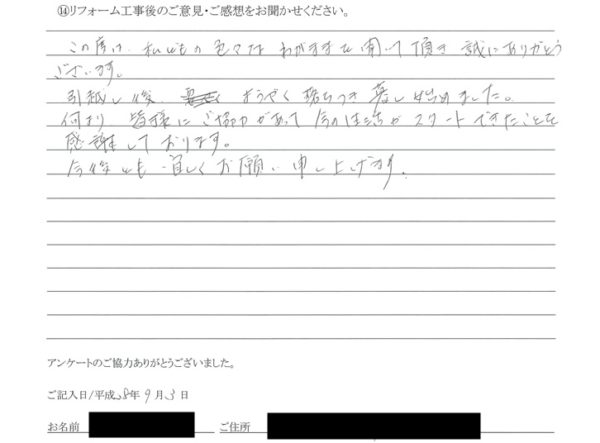 ⑭リフォーム工事後のご意見・ご感想をお聞かせください。
この度は、私どもの色々なわがままを聞いて頂き誠にありがとう
ございます。
引越し後、ようやく落ちつき暮し始めました。
何より、皆様にご協力があって今の生活がスタートできたことを
感謝しております。
今後とも宜しくお願い申し上げます。
アンケートのご協力ありがとうございました。
ご記入日/平成28年9月3日
お名前 ご住所